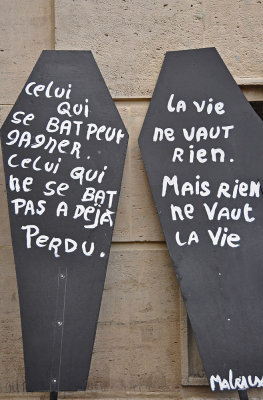 CELUI
QUI
SE BAT PEUT
GAGNER.
CELUI QUI
NE SE BAT
PAS A DÉJÀ
PERDU.
LA VIE
NE VAUT
RIEN.
MAIS RIEN
NE VAUT
LA VIE